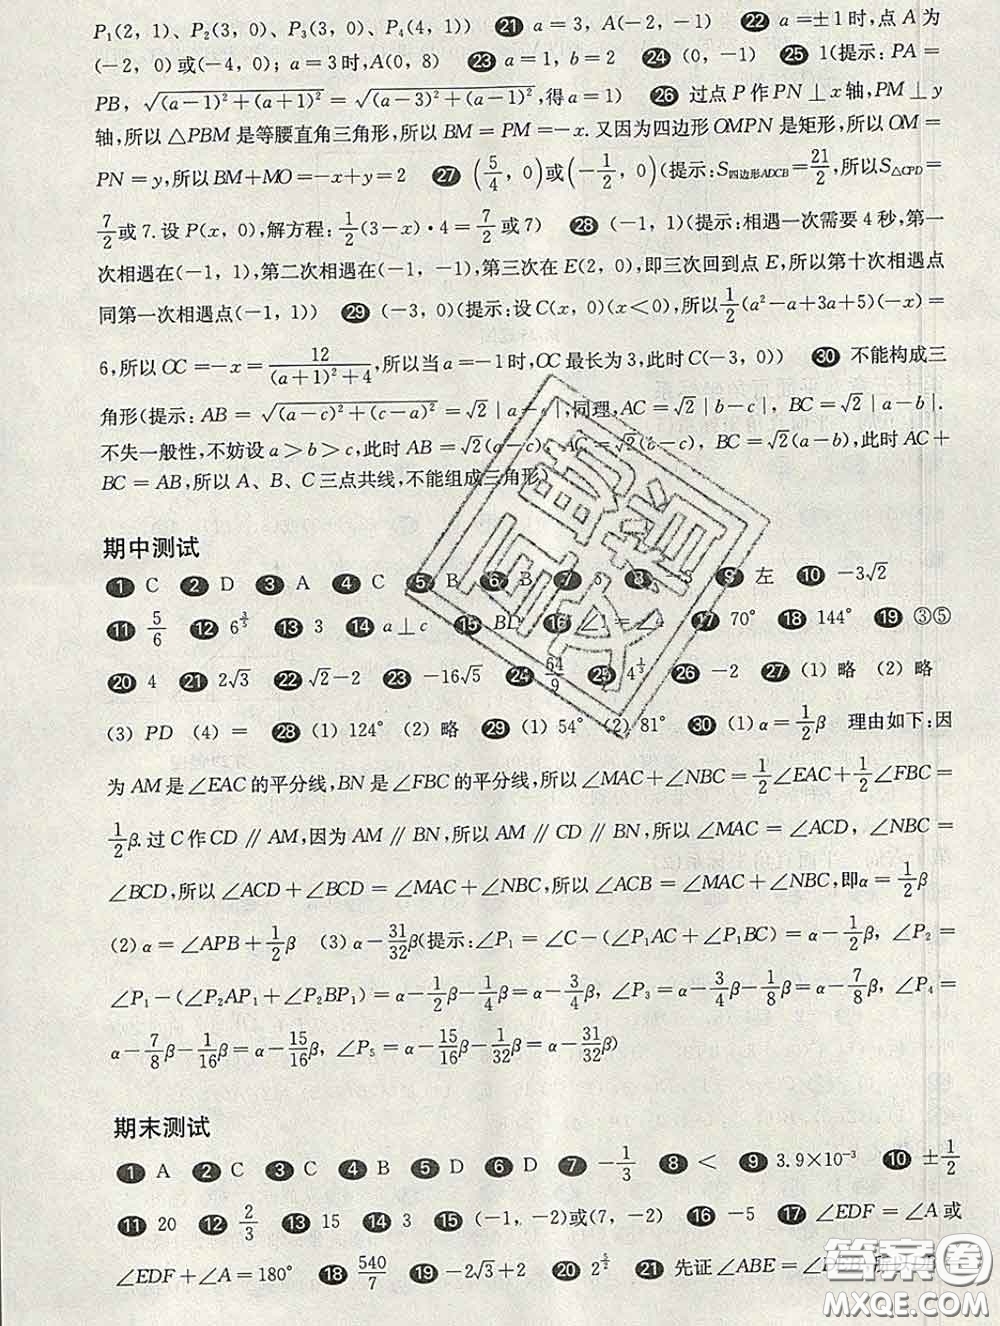 P₁(2, 1)、P₂(3, 0)、P₃(3, 0)、P₄(4, 1)) 21 a=3, A(-2, -1) 22 a=±1时,点 A 为
(-2, 0)或(-4, 0); a=3时,A(0, 8) 23 a=1, b=2 24 (0, -1) 25 1(提示: PA=
PB, √((a-1)²+(a+1)²)=√((a-3)²+(a-1)²),得a=1) 26 过点 P 作 PN⊥x 轴,PM⊥y
轴,所以△PBM 是等腰直角三角形,所以 BM=PM=-x. 又因为四边形 OMPN 是矩形,所以 OM=
PN=y,所以 BM+MO=-x+y=2 27 (5/4, 0)或(-1/2, 0)(提示: S四边形ADCB=21/2,所以S△CPD=
7/2或 7. 设 P(x, 0),解方程: 1/2(3-x)·4=7/2或 7) 28 (-1, 1)(提示:相遇一次需要 4 秒,第一
次相遇在(-1, 1),第二次相遇在(-1, -1),第三次在 E(2, 0),即三次回到点 E,所以第十次相遇点
同第一次相遇点(-1, 1)) 29 (-3, 0)(提示:设 C(x, 0)(x<0),所以1/2(a²-a+3a+5)(-x)=
6,所以 OC=-x=12/((a+1)²+4),所以当 a=-1 时,OC 最长为 3,此时 C(-3, 0)) 30 不能构成三
角形(提示: AB=√((a-c)²+(c-a)²)=√2|a-c|,同理, AC=√2|b-c|, BC=√2|a-b|.
不失一般性,不妨设 a>b>c,此时 AB=√2(a-c), AC=√2(b-c), BC=√2(a-b),此时 AC+
BC=AB,所以 A、B、C 三点共线,不能组成三角形
期中测试
1 C 2 D 3 A 4 C 5 B 6 B 7 8 9 左 10 -3√2
11 5/6 12 6^(3/5) 13 3 14 a⊥c 15 BD 16 ∠1=∠4 17 70° 18 144° 19 ③⑤
20 4 21 2√3 22 √2-2 23 -16√5 24 64/9 25 26 -2 27 (1) 略 (2) 略
(3) PD (4) = 28 (1) 124° (2) 略 29 (1) 54° (2) 81° 30 (1) α=1/2β 理由如下:因
为 AM 是∠EAC 的平分线,BN 是∠FBC 的平分线,所以∠MAC+∠NBC=1/2∠EAC+1/2∠FBC=
1/2β. 过 C 作 CD∥AM,因为 AM∥BN,所以 AM∥CD∥BN,所以∠MAC=∠ACD, ∠NBC=
∠BCD,所以∠ACD+∠BCD=∠MAC+∠NBC,所以∠ACB=∠MAC+∠NBC,即α=1/2β
(2) α=∠APB+1/2β (3) α-31/32β(提示:∠P₁=∠C-(∠P₁AC+∠P₁BC)=α-1/2β, ∠P₂=
∠P₁-(∠P₂AP₁+∠P₂BP₁)=α-1/2β-1/4β=α-3/4β, ∠P₃=α-3/4β-1/8β=α-7/8β, ∠P₄=
α-7/8β-1/16β=α-15/16β, ∠P₅=α-15/16β-1/32β=α-31/32β)
期末测试
1 A 2 C 3 C 4 B 5 D 6 D 7 -1/3 8 < 9 3.9×10⁻³ 10 ±1/2
11 20 12 2/3 13 15 14 3 15 (-1, -2)或(7, -2) 16 -5 17 ∠EDF=∠A 或
∠EDF+∠A=180° 18 540/7 19 -2√3+2 20 2^(5/2) 21 先证∠ABE=∠
互助文档
答案卷
MXQE.COM